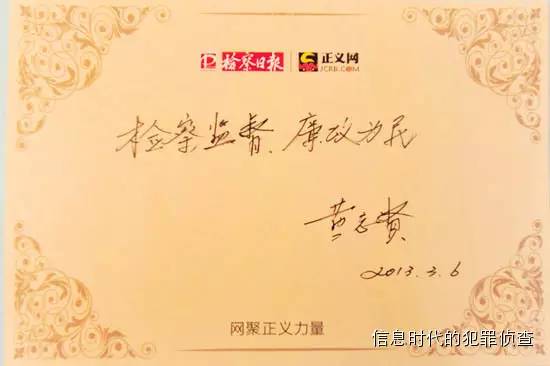 检察日报 正义网
JCRB.COM
检察监督、廉政为民
黄志贤
2013.3.6
网聚正义力量
信息时代的犯罪侦查